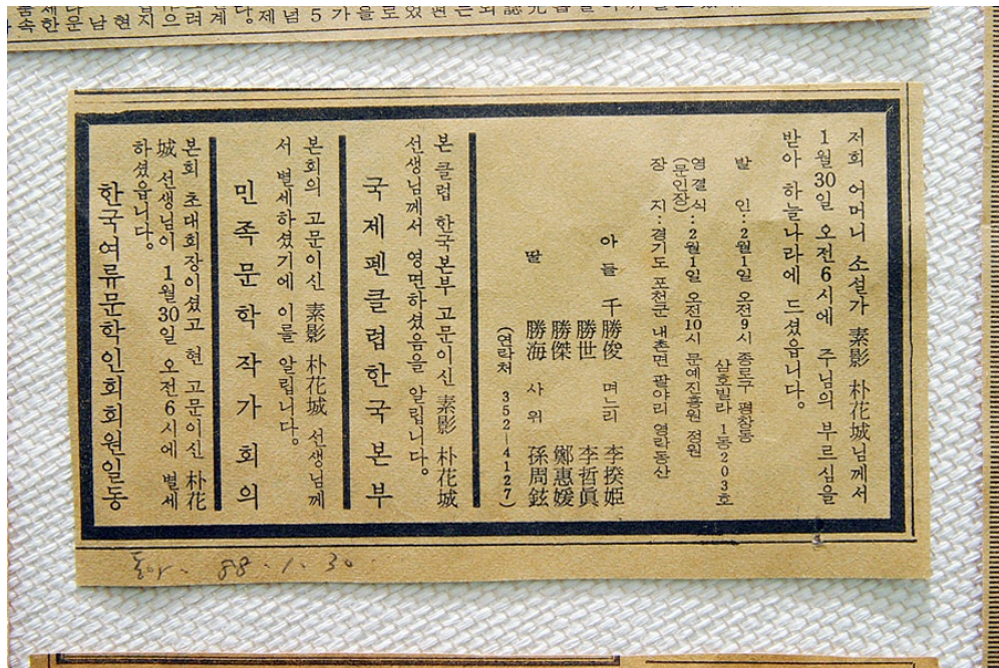 저희 어머니 소설가 素影 朴花城님께서
1월30일 오전6시에 주님의 부르심을
받아 하늘나라에 드셨읍니다.
발 인:2월1일 오전9시 종로구 평창동
삼호빌라 1동203호
영결식:2월1일 오전10시 문예진흥원 정원
(문인장)
장 지:경기도 포천군 내촌면 팔야리 영락동산
아들 千勝俊 며느리 李揆姬
勝世 李哲眞
勝傑 鄭惠媛
딸 勝海 사위 孫周鉉
(연락처 352-4127)
본 클럽 한국본부 고문이신 素影 朴花城
선생님께서 영면하셨음을 알립니다.
국제펜클럽한국본부
본회의 고문이신 素影 朴花城 선생님께
서 별세하셨기에 이를 알립니다.
민족문학작가회의
본회 초대회장이셨고 현 고문이신 朴花
城 선생님이 1월30일 오전6시에 별세
하셨읍니다.
한국여류문학인회회원일동
동아. 88.1.30